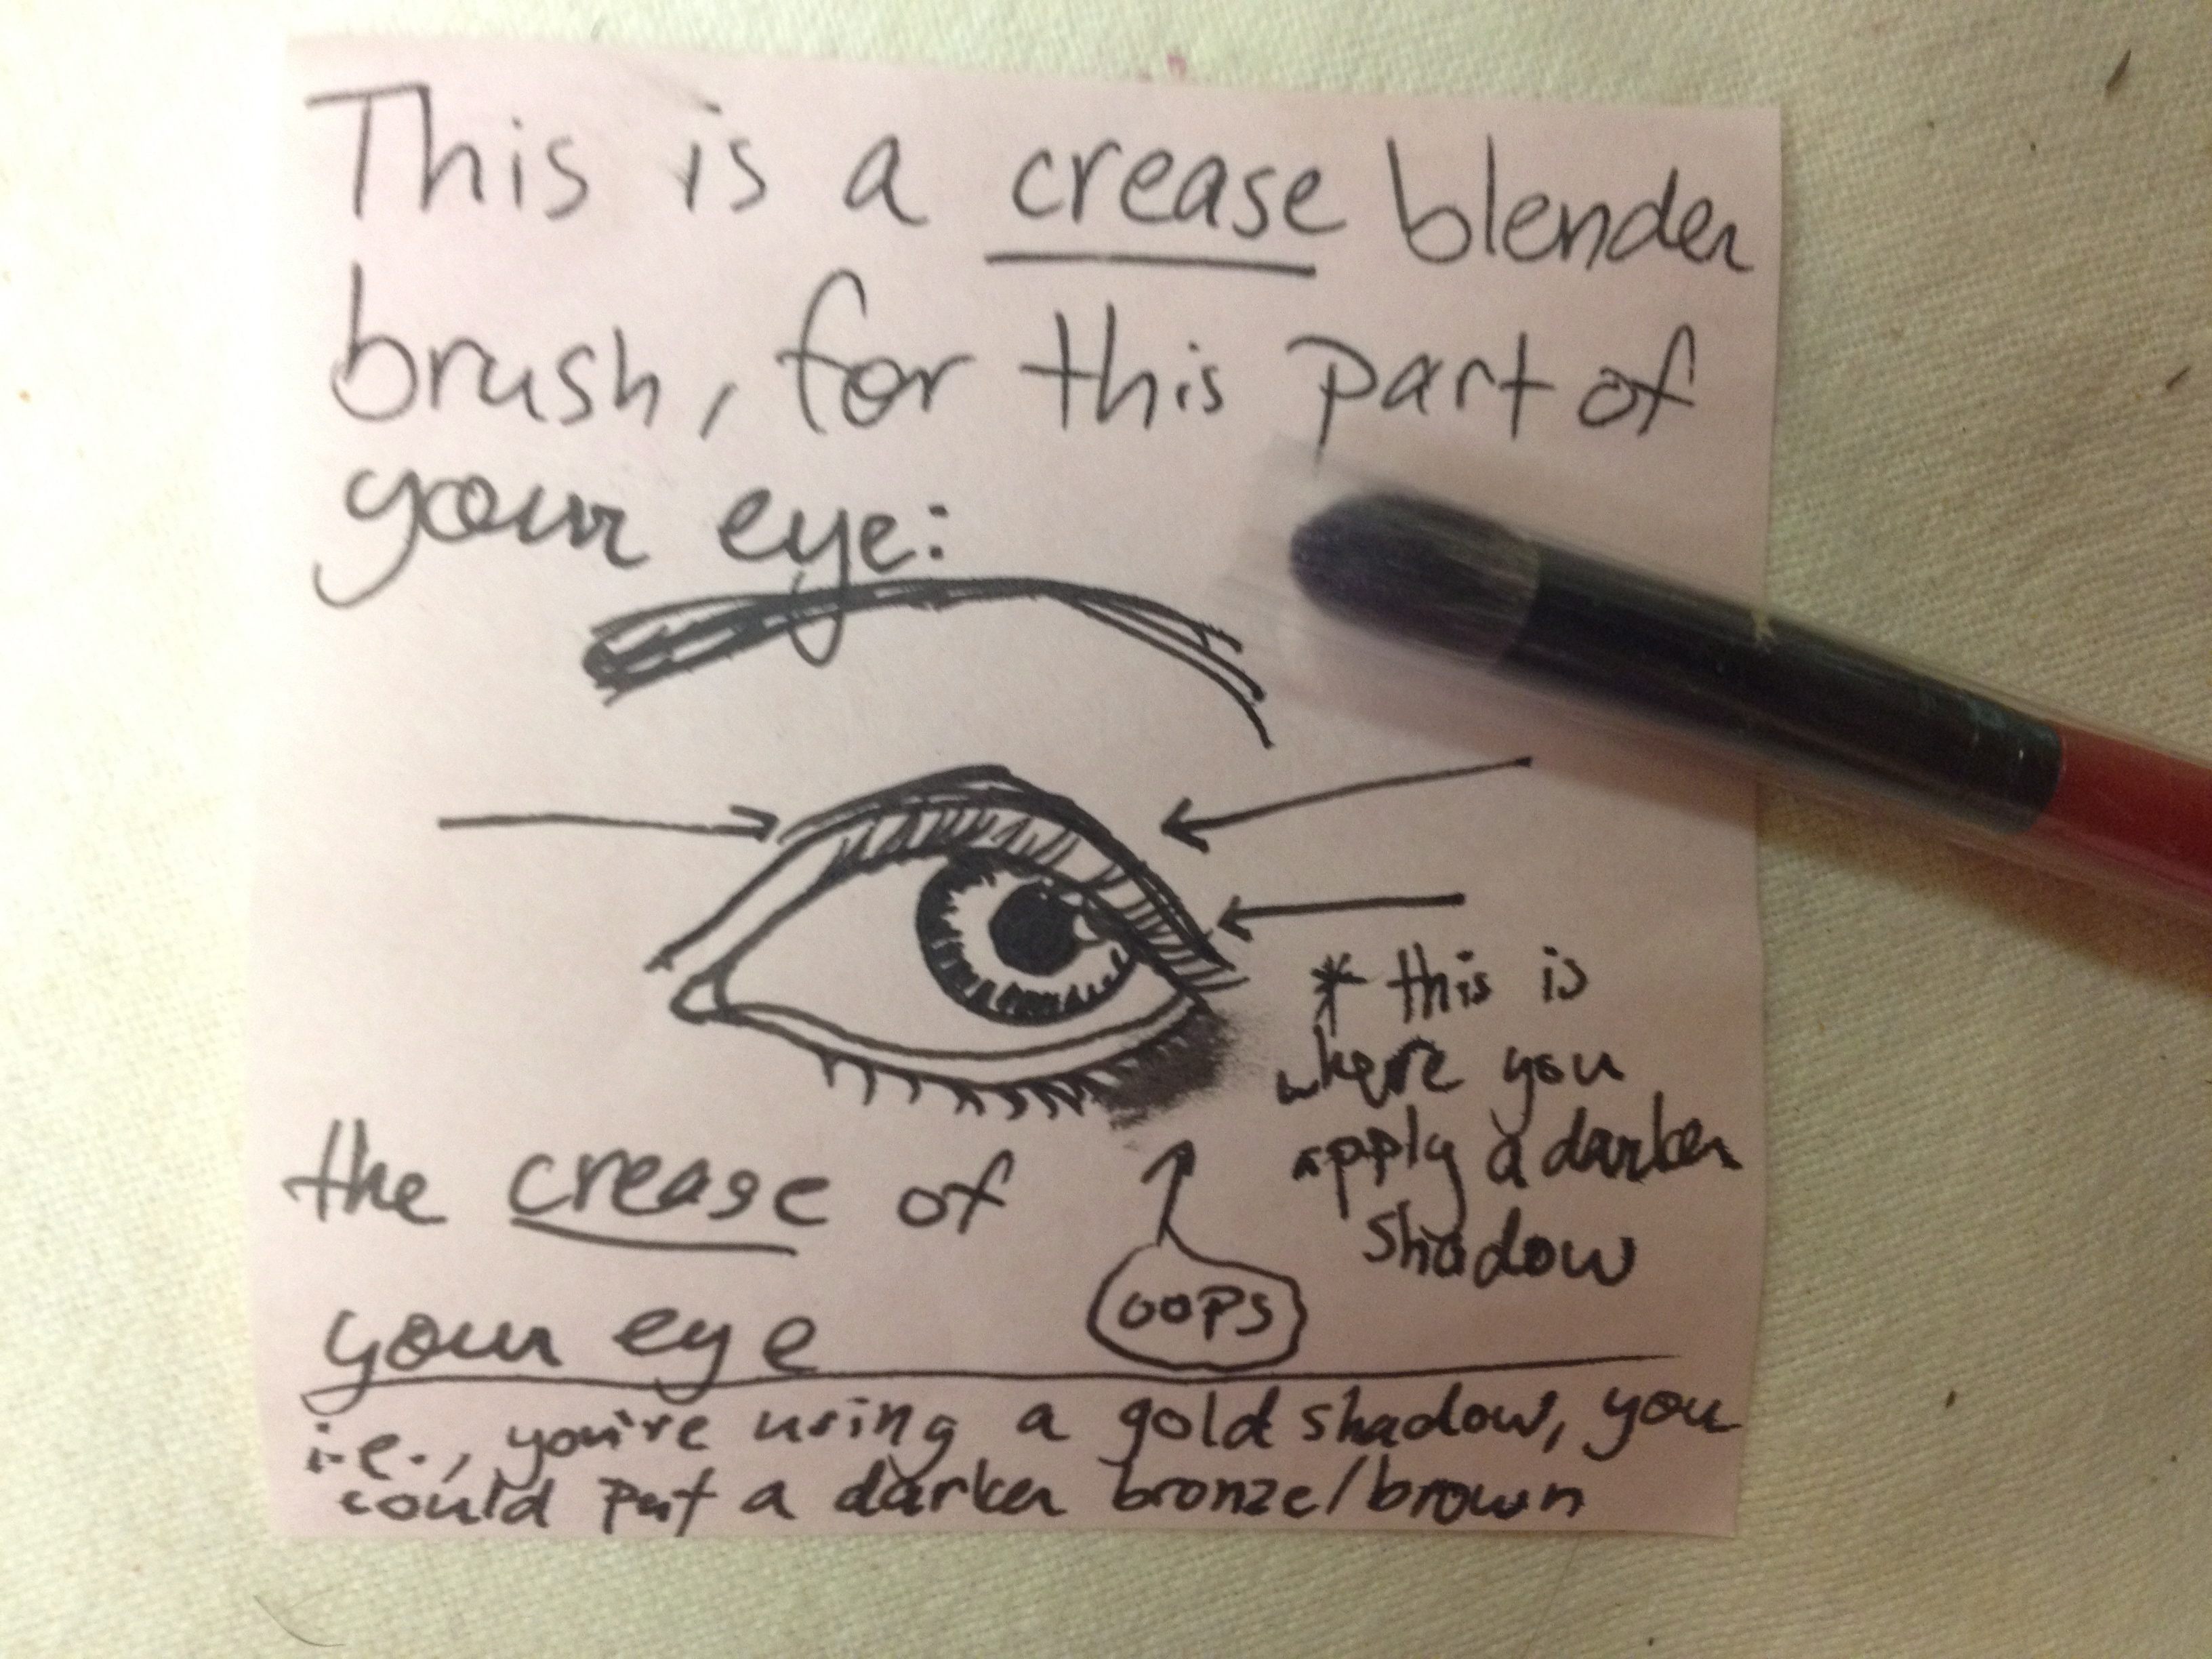 This is a crease blender
brush, for this part of
your eye:
* this is
where you
apply a darker
shadow
the crease of
your eye
oops
i.e., you're using a gold shadow, you
could put a darker bronze/brown